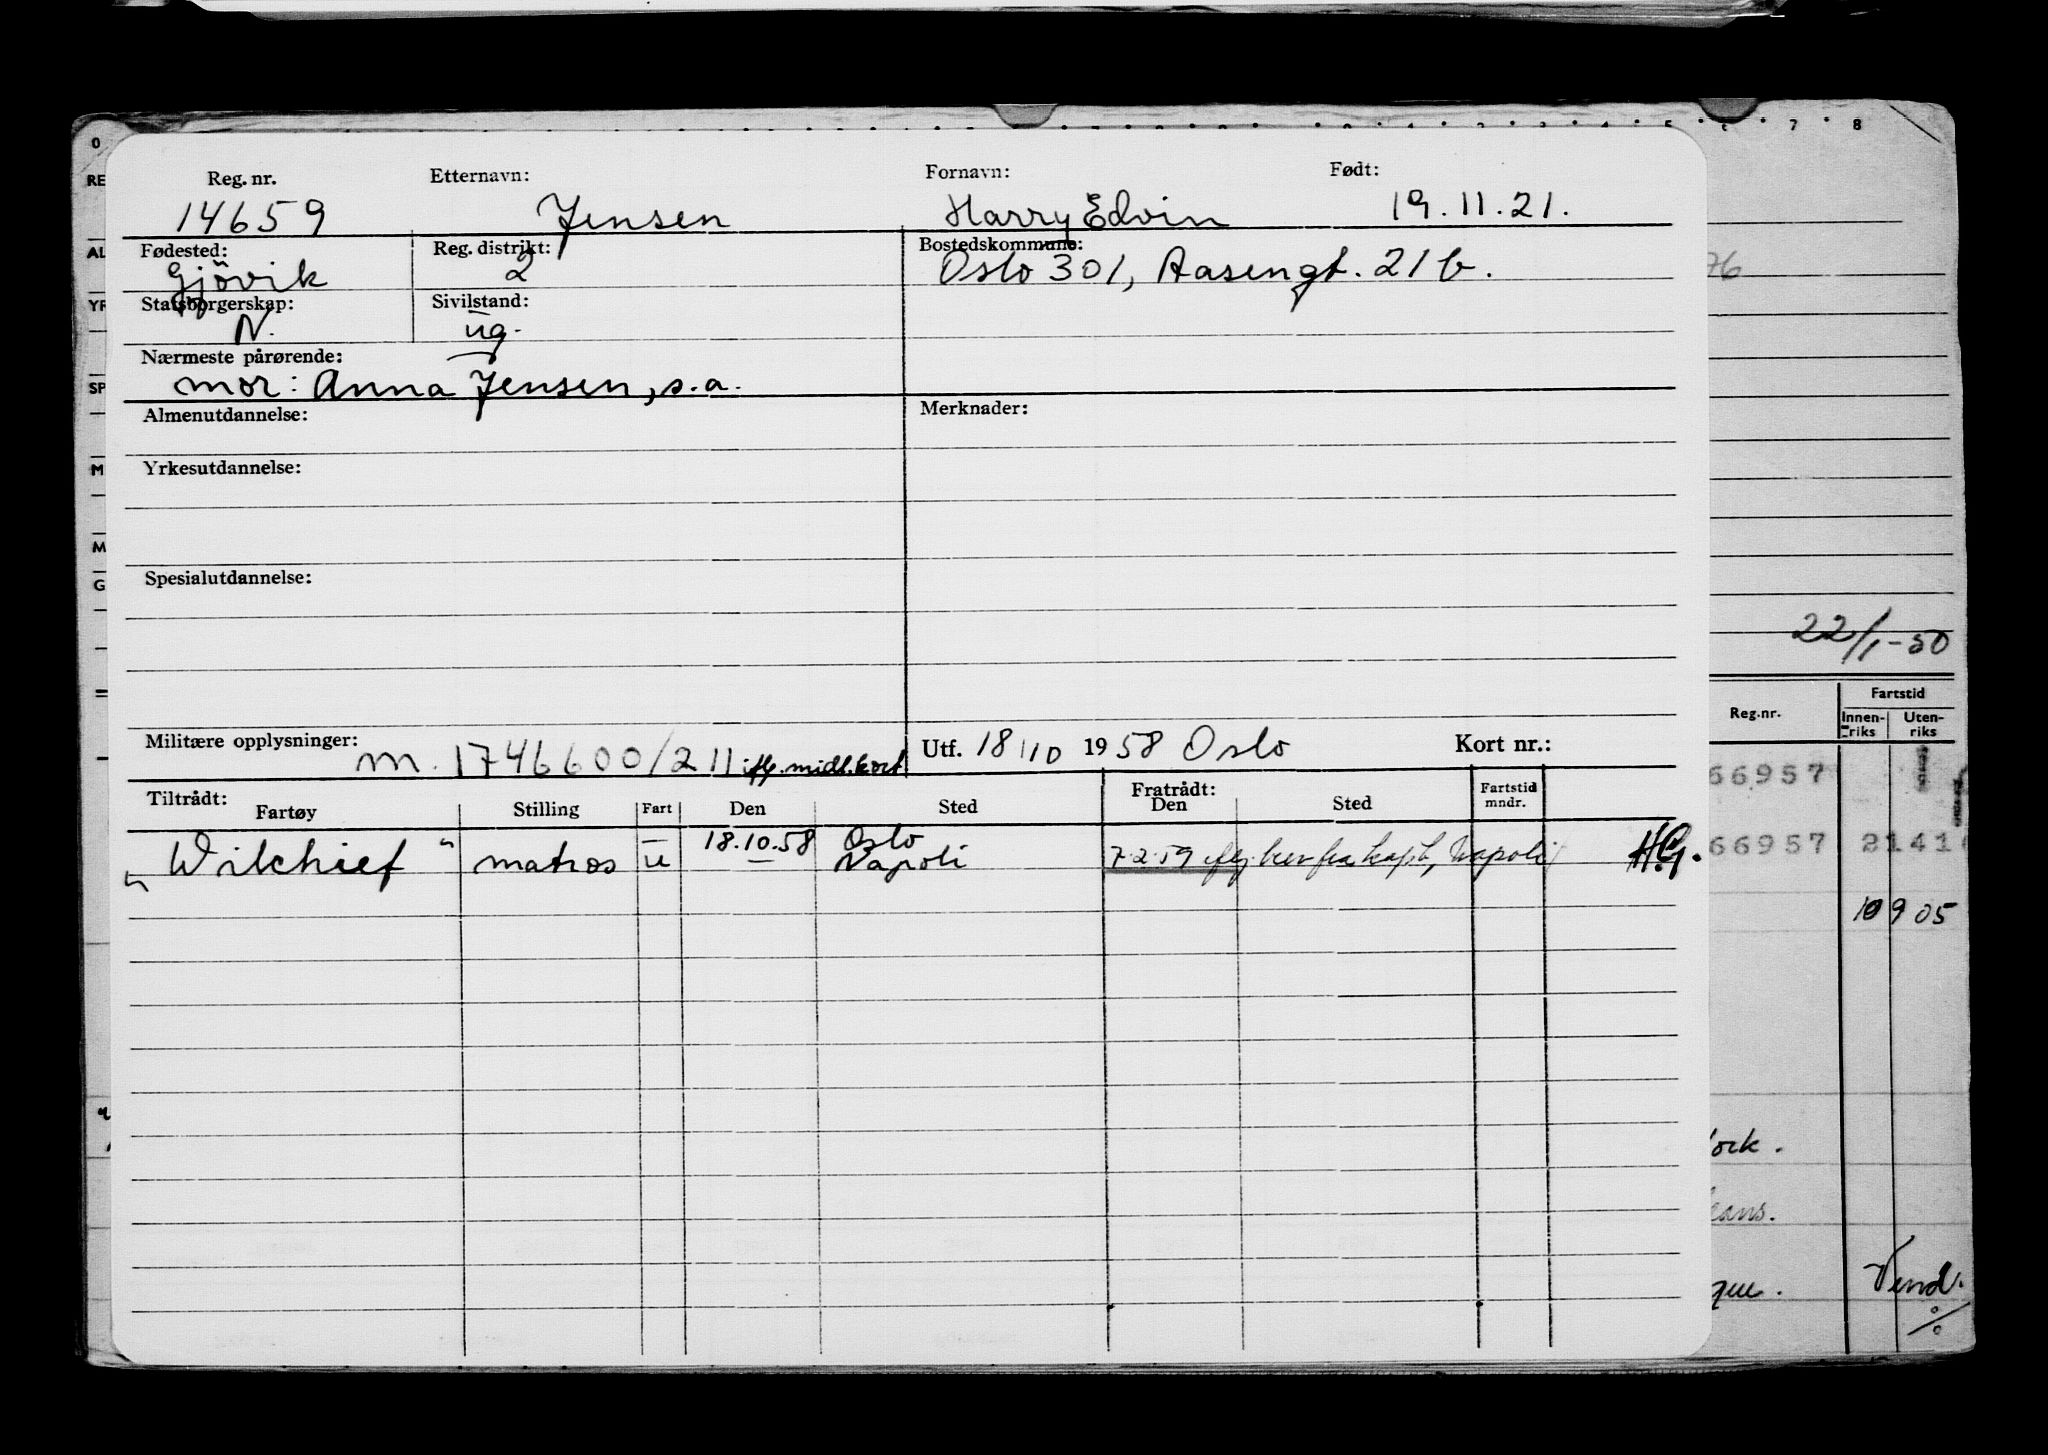 Reg. nr. Etternavn: Fornavn: Født:
14659 Jensen Harry Edvin 19.11.21.
Fødested: Reg. distrikt: Bostedskommune:
Gjövik 2 Oslo 301, Aasengt. 21 b.
Statsborgerskap: Sivilstand:
N. ug.
Nærmeste pårørende:
mor: Anna Jensen, s.a.
Almenutdannelse: Merknader:
Yrkesutdannelse:
Spesialutdannelse:
Militære opplysninger: Utf. 18/10 1958 Oslo Kort nr.:
m. 1746600/211 iflg. midl. kort
Tiltrådt: Fratrådt:
Fartøy Stilling Fart Den Sted Den Sted Fartstid mndr.
18.10.58 Oslo
"Wilchief" matros u — Napoli 7.2.59 iflg. brev fra kapt., Napoli H.G.
0 7 8
RE
AL
76
YR
SP
M
M
G
22/1-50
Fartstid
Reg.nr. Innenriks Utenriks
66957
66957 21416
10905
lock.
leans.
que.
Vend.